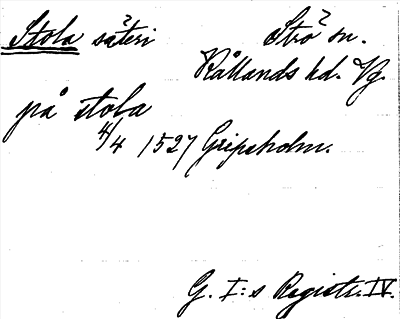 Stola säteri
Strö sn.
Kållands hd. Vg.
på stola
4/4 1527 Gripsholm.
G. I:s Registr. IV.